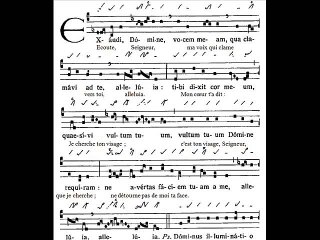 EXáudi, Dómine, vocem meam, qua cla-
Ecoute, Seigneur, ma voix qui clame
mávi ad te, allelúia : tibi dixit cor meum,
vers toi, alleluia. Mon cœur t'a dit :
quaesívi vultum tuum, vultum tuum Dómine
Je cherche ton visage ; c'est ton visage, Seigneur,
requiram : ne avértas fáciem tuam a me, alle-
que je cherche ; ne détourne pas de moi ta face.
lúia, allelúia. Ps. Dóminus illuminátio